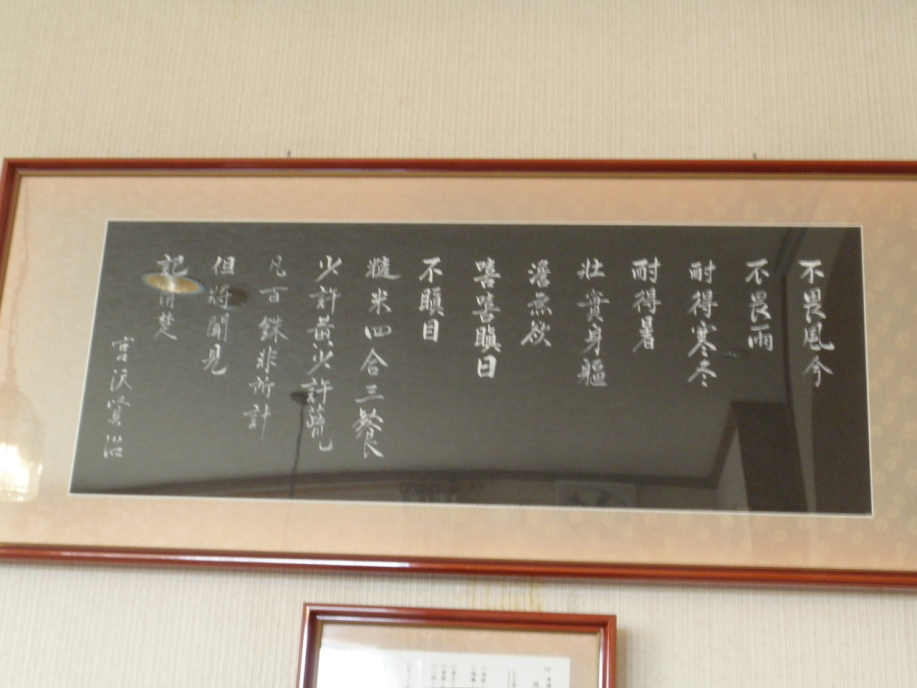 不畏風今
不畏雨
耐得寒冬
耐得暑
壮實身軀
澹無欲
嘻嘻瞋日
不瞋目
糙米四合三餐
少許黄少許
凡百銖非所計
但将聞見
記清楚
宮沢賢治